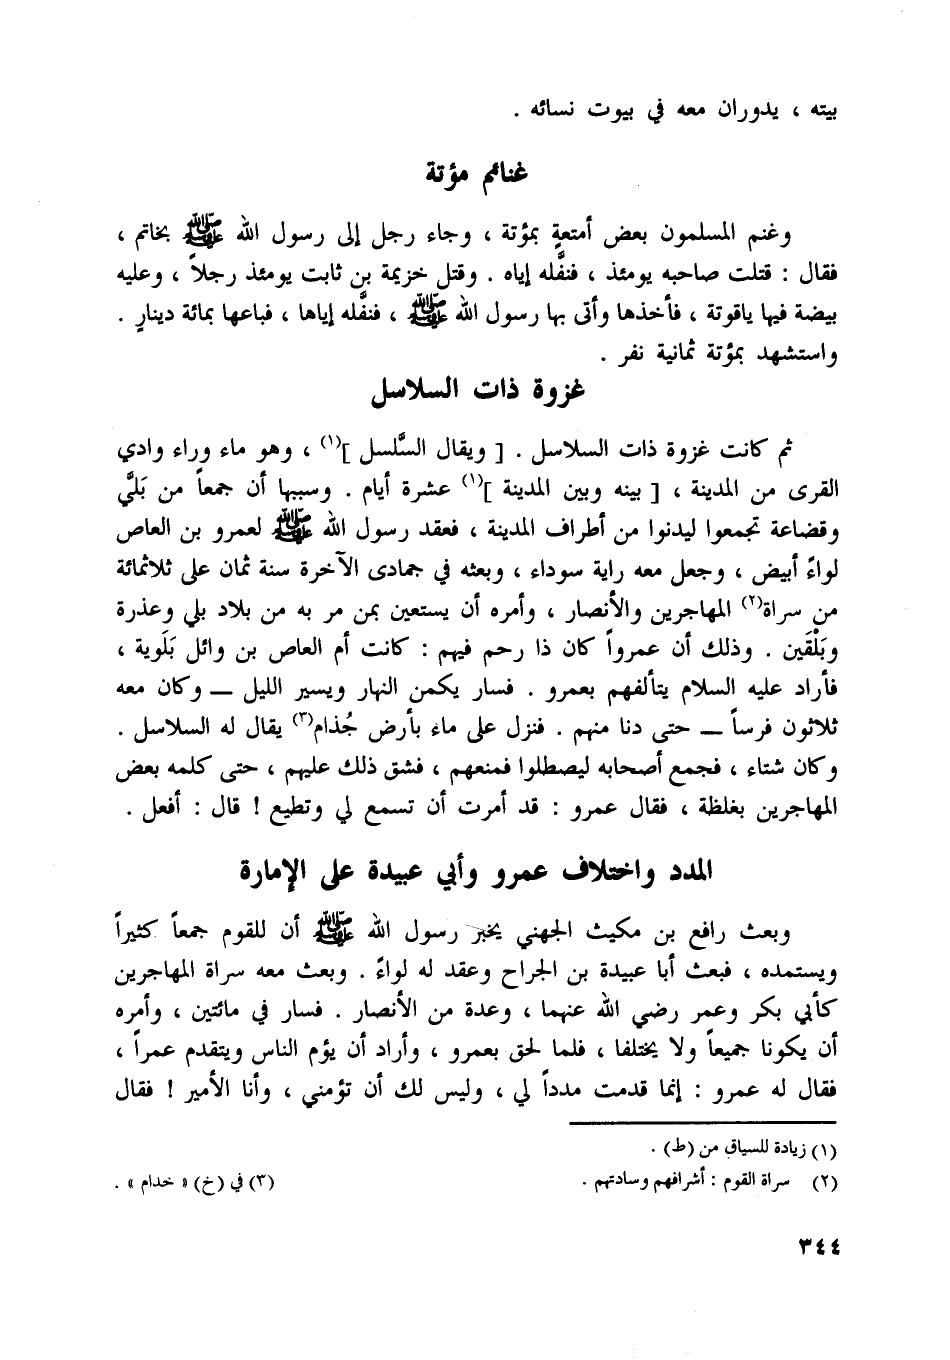 بيته ، يدوران معه في بيوت نسائه .
غنائم مؤتة
وغنم المسلمون بعض أمتعةٍ بمؤتة ، وجاء رجل إلى رسول الله ﷺ بخاتم ،
فقال : قتلت صاحبه يومئذ ، فنفَّله إياه . وقتل خزيمة بن ثابت يومئذ رجلاً ، وعليه
بيضة فيها ياقوتة ، فأخذها وأتى بها رسول الله ﷺ ، فنفَّله إياها ، فباعها بمائة دينارٍ .
واستشهد بمؤتة ثمانية نفر .
غزوة ذات السلاسل
ثم كانت غزوة ذات السلاسل . [ ويقال السَّلسل ](١) ، وهو ماء وراء وادي
القرى من المدينة ، [ بينه وبين المدينة ](١) عشرة أيام . وسببها أن جمعاً من بَلَيَّ
وقضاعة تجمعوا ليدنوا من أطراف المدينة ، فعقد رسول الله ﷺ لعمرو بن العاص
لواءً أبيض ، وجعل معه راية سوداء ، وبعثه في جمادى الآخرة سنة ثمان على ثلاثمائة
من سراة(٢) المهاجرين والأنصار ، وأمره أن يستعين بمن مر به من بلاد بلي وعذرة
وبَلْقَين . وذلك أن عمرواً كان ذا رحم فيهم : كانت أم العاص بن وائل بَلَوية ،
فأراد عليه السلام يتألفهم بعمرو . فسار يكمن النهار ويسير الليل ــ وكان معه
ثلاثون فرساً ــ حتى دنا منهم . فنزل على ماء بأرض جُذام(٣) يقال له السلاسل .
وكان شتاء ، فجمع أصحابه ليصطلوا فمنعهم ، فشق ذلك عليهم ، حتى كلمه بعض
المهاجرين بغلظة ، فقال عمرو : قد أمرت أن تسمع لي وتطيع ! قال : أفعل .
المدد واختلاف عمرو وأبي عبيدة على الإمارة
وبعث رافع بن مكيث الجهني يخبر رسول الله ﷺ أن للقوم جمعاً كثيراً
ويستمده ، فبعث أبا عبيدة بن الجراح وعقد له لواءً . وبعث معه سراة المهاجرين
كأبي بكر وعمر رضي الله عنهما ، وعدة من الأنصار . فسار في مائتين ، وأمره
أن يكونا جميعاً ولا يختلفا ، فلما لحق بعمرو ، وأراد أن يؤم الناس ويتقدم عمراً ،
فقال له عمرو : إنما قدمت مدداً لي ، وليس لك أن تؤمني ، وأنا الأمير ! فقال
(١) زيادة للسياق من (ط) .
(٢) سراة القوم : أشرافهم وسادتهم .
(٣) في (خ) « خدام » .
٣٤٤